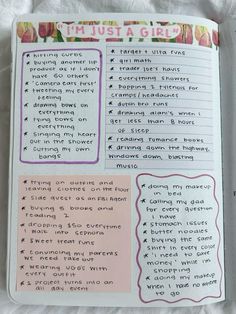 "I'M JUST A GIRL"
* hitting curbs
* buying another lip
product as if I don't
have 60 others
* "camera eats first"
* tweeting my every
feeling
* drawing bows on
everything
* tying bows on
everything
* singing my heart
out in the shower
* cutting my own
bangs
* target + ulta runs
* girl math
* trader joe's hauls
* everything showers
* popping 2 tylenols for
cramps/headaches
* dutch bro runs
* drinking alani's when I
get less than 8 hours
of sleep
* reading romance books
* driving down the highway,
windows down, blasting
music
* trying on outfits and
leaving clothes on the floor
* side quest as an FBI agent
* buying 5 books and
reading 2
* dropping $50 everytime
I walk into sephora
* sweet treat runs
* convincing my parents
we need take out
* wearing UGGS with
every outfit
* 1 project turns into an
all day event
* doing my makeup
in bed
* calling my dad
for every question
I have
* stomach issues
* butter noodles
* buying the same
shirt in every color
* "i need to save
money" while im
shopping
* doing my makeup
when I have no where
to go